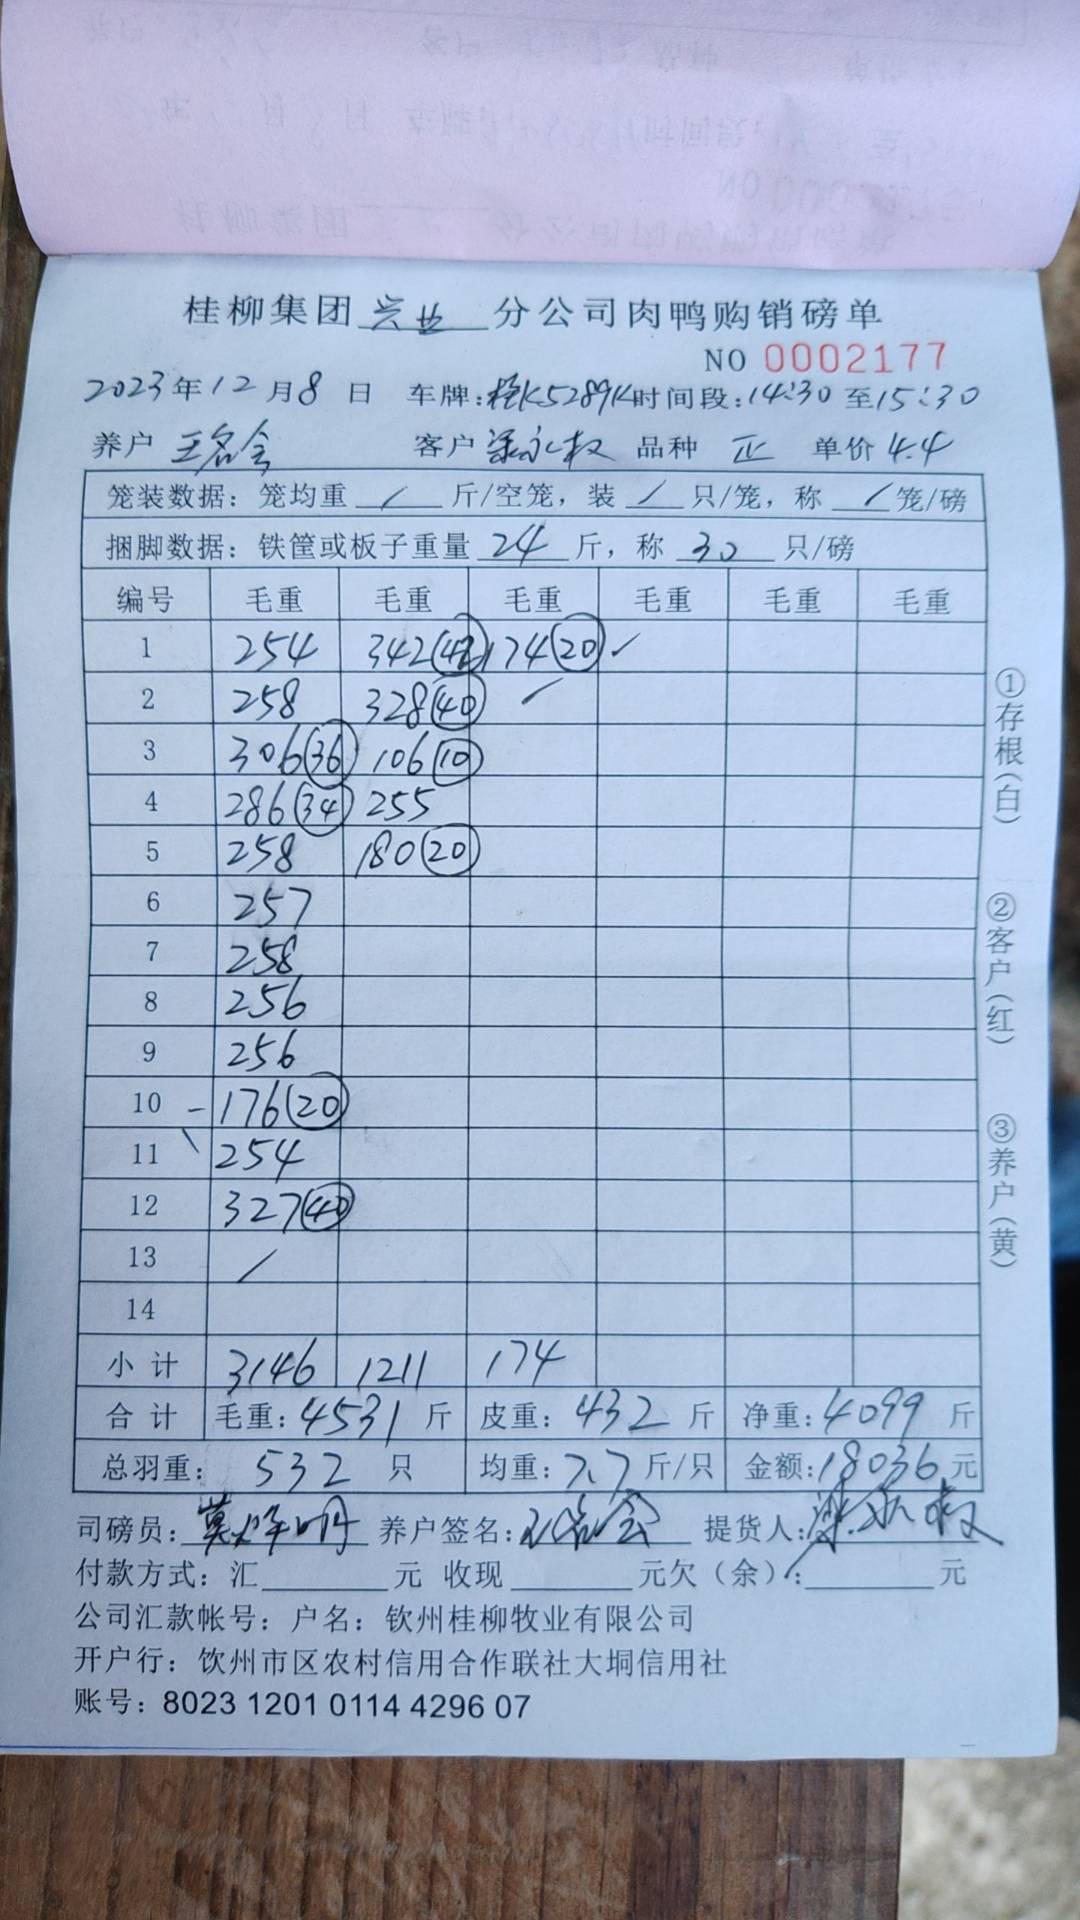 桂柳集团兴业分公司肉鸭购销磅单
NO 0002177
2023年12月8日 车牌:桂K5289K时间段:14:30至15:30
养户 王名会 客户 梁永权 品种 正 单价4.4
笼装数据：笼均重 / 斤/空笼，装 / 只/笼，称 / 笼/磅
捆脚数据：铁筐或板子重量 24 斤，称 30 只/磅
编号 毛重 毛重 毛重 毛重 毛重 毛重
1 254 342(42) 174(20)
2 258 328(40) /
3 306(36) 106(10)
4 286(34) 255
5 258 180(20)
6 257
7 258
8 256
9 256
10 176(20)
11 254
12 327(40)
13 /
14
小计 3146 1211 174
合计 毛重:4531斤 皮重:432斤 净重:4099斤
总羽重: 532 只 均重:7.7斤/只 金额:18036元
司磅员: 养户签名:王名会 提货人:梁永权
付款方式：汇 元 收现 元欠（余）: 元
公司汇款帐号：户名：钦州桂柳牧业有限公司
开户行：钦州市区农村信用合作联社大垌信用社
账号：8023 1201 0114 4296 07
①存根(白)
②客户(红)
③养户(黄)